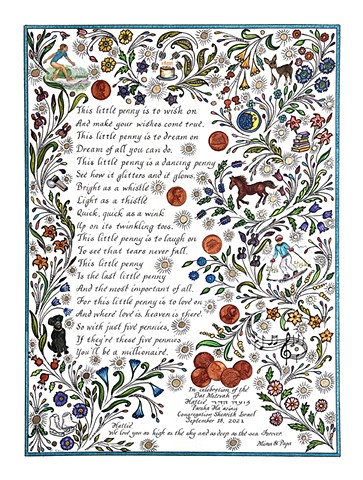 This little penny is to wish on
And make your wishes come true.
This little penny is to dream on
Dream of all you can do.
This little penny is a dancing penny
See how it glitters and it glows.
Bright as a whistle
Light as a thistle
Quick, quick as a wink
Up on its twinkling toes.
This little penny is to laugh on
To see that tears never fall.
This little penny
Is the last little penny
And the most important of all.
For this little penny is to love on
And where love is, heaven is there.
So with just five pennies,
If they're these five pennies
You'll be a millionaire.
In celebration of the
Bat Mitzvah of
Hattie
Parsha Ha'azinu
Congregation Shearith Israel
September 18, 2021
Hattie,
We love you as high as the sky and as deep as the sea. Forever.
Mima & Papa